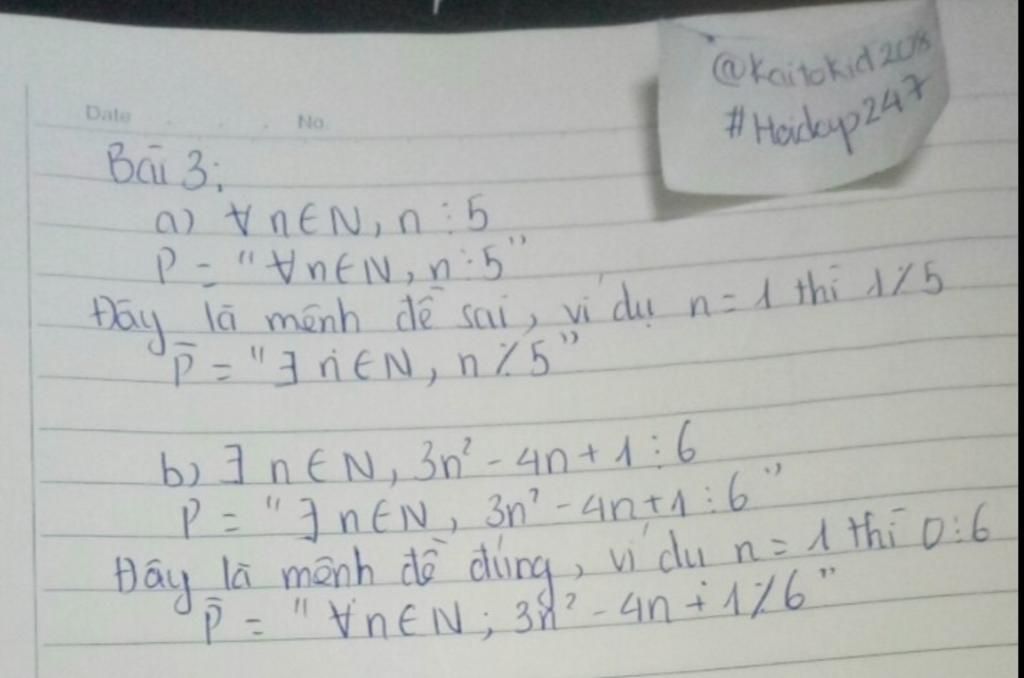 @Kaitokid2018
#Hoidap247
Date No.
Bài 3:
a) ∀ n ∈ N, n ⋮ 5
P = "∀ n ∈ N, n ⋮ 5"
Đây là mệnh đề sai, ví dụ n = 1 thì 1 ⋮̸ 5
P̅ = "∃ n ∈ N, n ⋮̸ 5"
b) ∃ n ∈ N, 3n² - 4n + 1 ⋮ 6
P = "∃ n ∈ N, 3n² - 4n + 1 ⋮ 6"
Đây là mệnh đề đúng, ví dụ n = 1 thì 0 ⋮ 6
P̅ = "∀ n ∈ N; 3n² - 4n + 1 ⋮̸ 6"